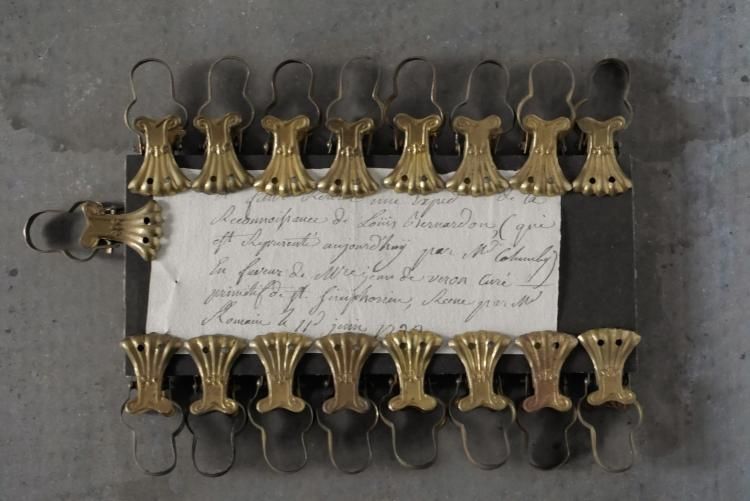 une Exped de la
Reconnoissance de Loüis Bernardon (qui
est Representé aujourd'huy par Mr Columby)
En faveur de Mre jean de veron Curé
primitif de st. simphorien, Recue par Me
Romain le 11 juin